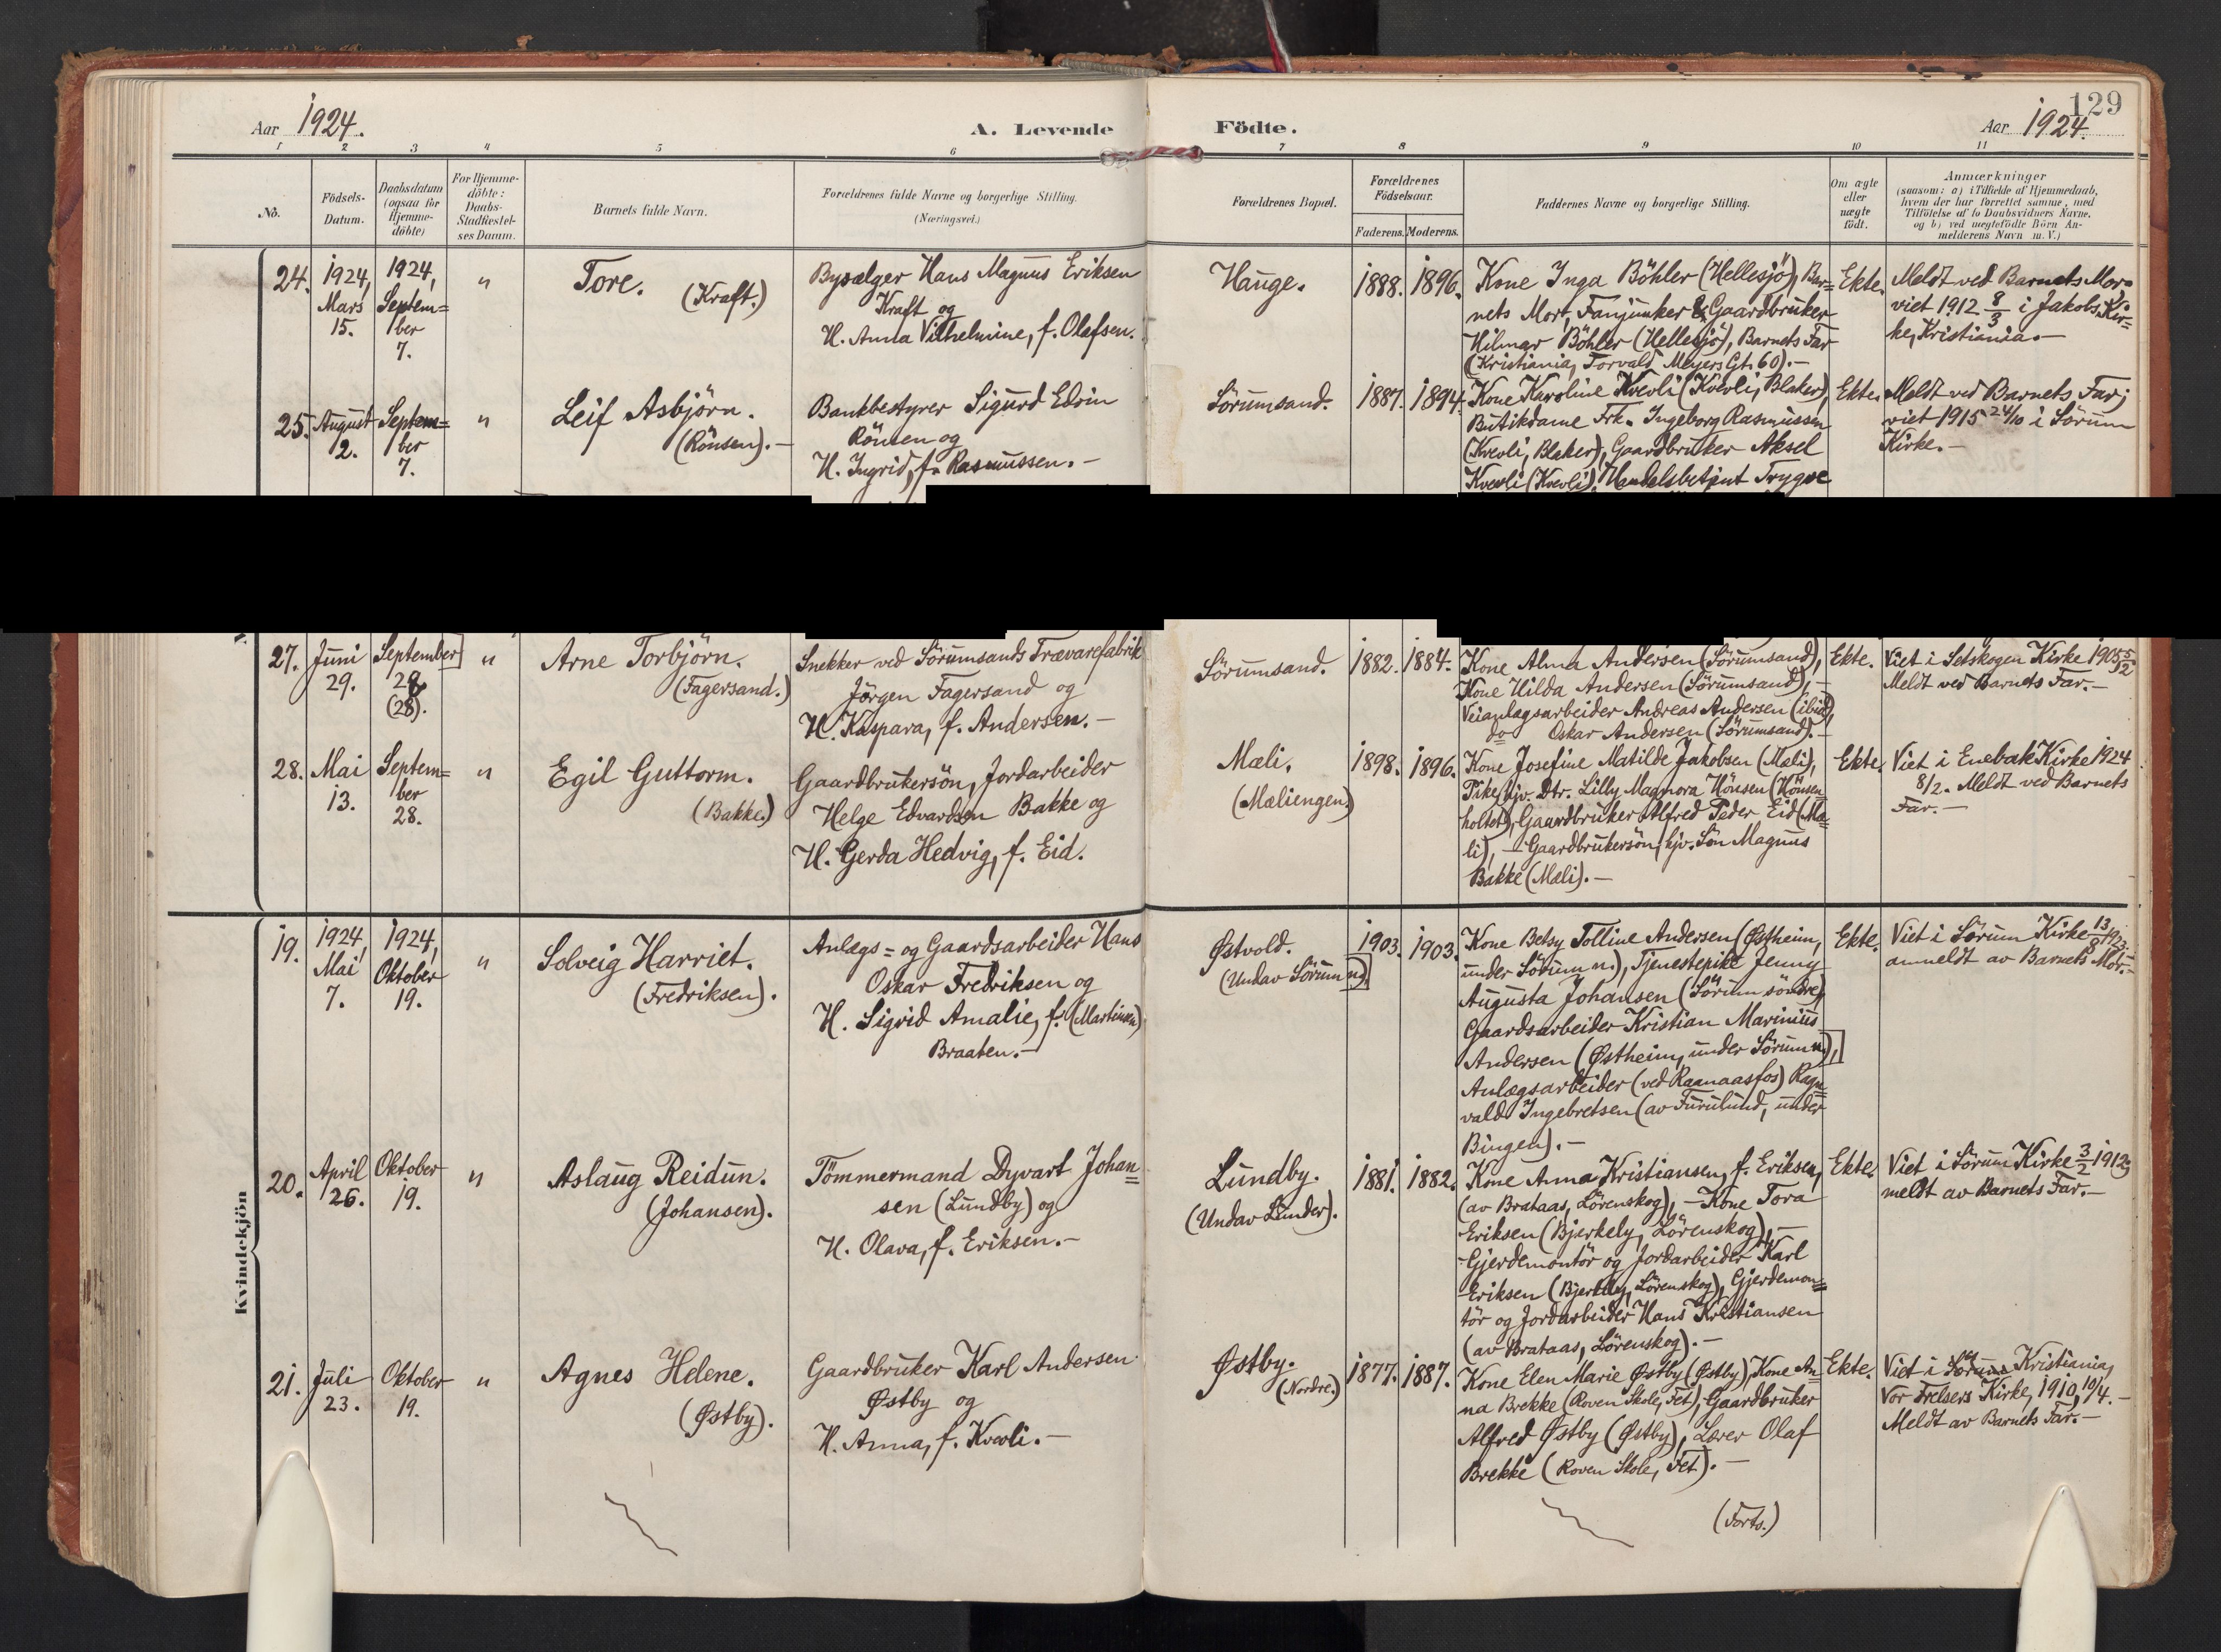 129
Aar 1924.
A. Levende Födte.
Aar 1924.
1 2 3 4 5 6 7 8 9 10 11
No.
Födsels-
Datum.
Daabsdatum
(ogsaa for
Hjemme-
döbte)
For Hjemme-
döbte:
Daabs-
Stadfæstel-
ses Datum.
Barnets fulde Navn.
Forældrenes fulde Navne og borgerlige Stilling.
(Næringsvei.)
Forældrenes Bopæl.
Forældrenes
Födselsaar.
Faderens. Moderens.
Faddernes Navne og borgerlige Stilling.
Om ægte
eller
uægte
födt.
Anmærkninger
(saasom: a) i Tilfælde af Hjemmedaab,
hvem der har forrettet samme, med
Tilföielse af to Daabsvidners Navne,
og b) ved uægtefödte Börn An-
melderens Navn m. V.)
24.
1924,
Mars
15.
1924,
Septem=
ber
7.
"
Tore.
(Kraft.)
Bysælger Hans Magnus Eriksen
Kraft og
H. Anna Vilhelmine, f. Olafsen.
Hauge.
1888. 1896.
Kone Inga Böhler (Hellesjö), Bar=
nets Mor, Fanjunker & Gaardbruker
Hilmar Böhler (Hellesjö), Barnets Far
(Kristiania, Torvald Meyers Gt. 60).-
Ekte.
Meldt ved Barnets Mor
viet 1912 8/3 i Jakobs Kir=
ke, Kristiania.-
25.
August
2.
Septem=
ber
7.
"
Leif Asbjörn.
(Rönsen).-
Bankbestyrer Sigurd Edvin
Rönsen og
H. Ingrid, f. Rasmussen.-
Sörumsand.
1887. 1894.
Kone Karoline Kvevli (Kvevli, Blaker),
Butikdame Frk. Ingeborg Rasmussen
(Kvevli, Blaker), Gaardbruker Aksel
Kvevli (Kvevli), Handelsbetjent Trygve
Ekte.
Meldt ved Barnets Far;
viet 1915 24/10 i Sörum
Kirke.-
27.
Juni
29.
September
28
(28).
"
Arne Torbjörn.
(Fagersand.)
Snekker ved Sörumsands Trævarefabrik
Jörgen Fagersand og
H. Kaspara, f. Andersen.-
Sörumsand.
1882. 1884.
Kone Alma Andersen (Sörumsand),
Kone Hilda Andersen (Sörumsand),-
Veianlagsarbeider Andreas Andersen (ibid),
do Oskar Andersen (Sörumsand).-
Ekte.
Viet i Setskogen Kirke 1905 5/12
Meldt ved Barnets Far.-
28.
Mai
13.
Septem=
ber
28.
"
Egil Guttorm.
(Bakke.)
Gaardbrukersön, Jordarbeider
Helge Edvardsen Bakke og
H. Gerda Hedvig, f. Eid.
Mæli.
(Mæliengen)
1898. 1896.
Kone Josefine Matilde Jakobsen (Mæli),
Pike, hjv. Dtr. Lilly Magnora Hönsen (Hönsen=
holtet), Gaardbruker Alfred Peder Eid (Mæ=
li),- Gaardbrukersön, hjv. Sön Magnus
Bakke (Mæli).-
Ekte.
Viet i Enebak Kirke 1924
8/2. Meldt ved Barnets
Far.-
Kvindekjön
19.
1924,
Mai
7.
1924,
Oktober
19.
"
Solveig Harriet.
(Fredriksen).
Anlægs= og Gaardsarbeider Hans
Oskar Fredriksen og
H. Sigrid Amalie, f. (Martinsen)
Braaten.-
Østvold.
(Undav Sörum n.)
1903. 1903.
Kone Betsy Tolline Andersen (Østheim,
under Sörum n.), Tjenestepike Jenny
Augusta Johansen (Sörum söndre),
Gaardsarbeider Kristian Marinius
Andersen (Østheim, under Sörum n.),
Anlægsarbeider (ved Raanaasfos) Ragn=
vald Ingebretsen (av Furulund, under
Bingen).-
Ekte.
Viet i Sörum Kirke 13/8 1923.
anmeldt av Barnets Mor.-
20.
April
26.
Oktober
19.
"
Aslaug Reidun.
(Johansen).
Tömmermand Dyvart Johan=
sen (Lundby) og
H. Olava, f. Eriksen.-
Lundby.
(Undav Lunder).
1881. 1882.
Kone Anna Kristiansen, f. Eriksen,
(av Brataas, Lörenskog),- Kone Tora
Eriksen (Bjerkely, Lörenskog),-
Gjerdemontör og Jordarbeider Karl
Eriksen (Bjerkely, Lörenskog), Gjerdemon=
tör og Jordarbeider Hans Kristiansen
(av Brataas, Lörenskog).-
Ekte.
Viet i Sörum Kirke 3/2 1912,
meldt av Barnets Far.-
21.
Juli
23.
Oktober
19.
"
Agnes Helene.
(Østby).
Gaardbruker Karl Andersen
Østby og
H. Anna, f. Kvevli.-
Østby.
(Nordre.)
1877. 1887.
Kone Elen Marie Østby (Østby), Kone An=
na Brekke (Roven Skole, Fet), Gaardbruker
Alfred Østby (Østby), Lærer Olaf
Brekke (Roven Skole, Fet).-
Ekte.
Viet i Kristiania,
Vor Frelsers Kirke, 1910, 10/4.-
Meldt av Barnets Far.-
(Forts.)